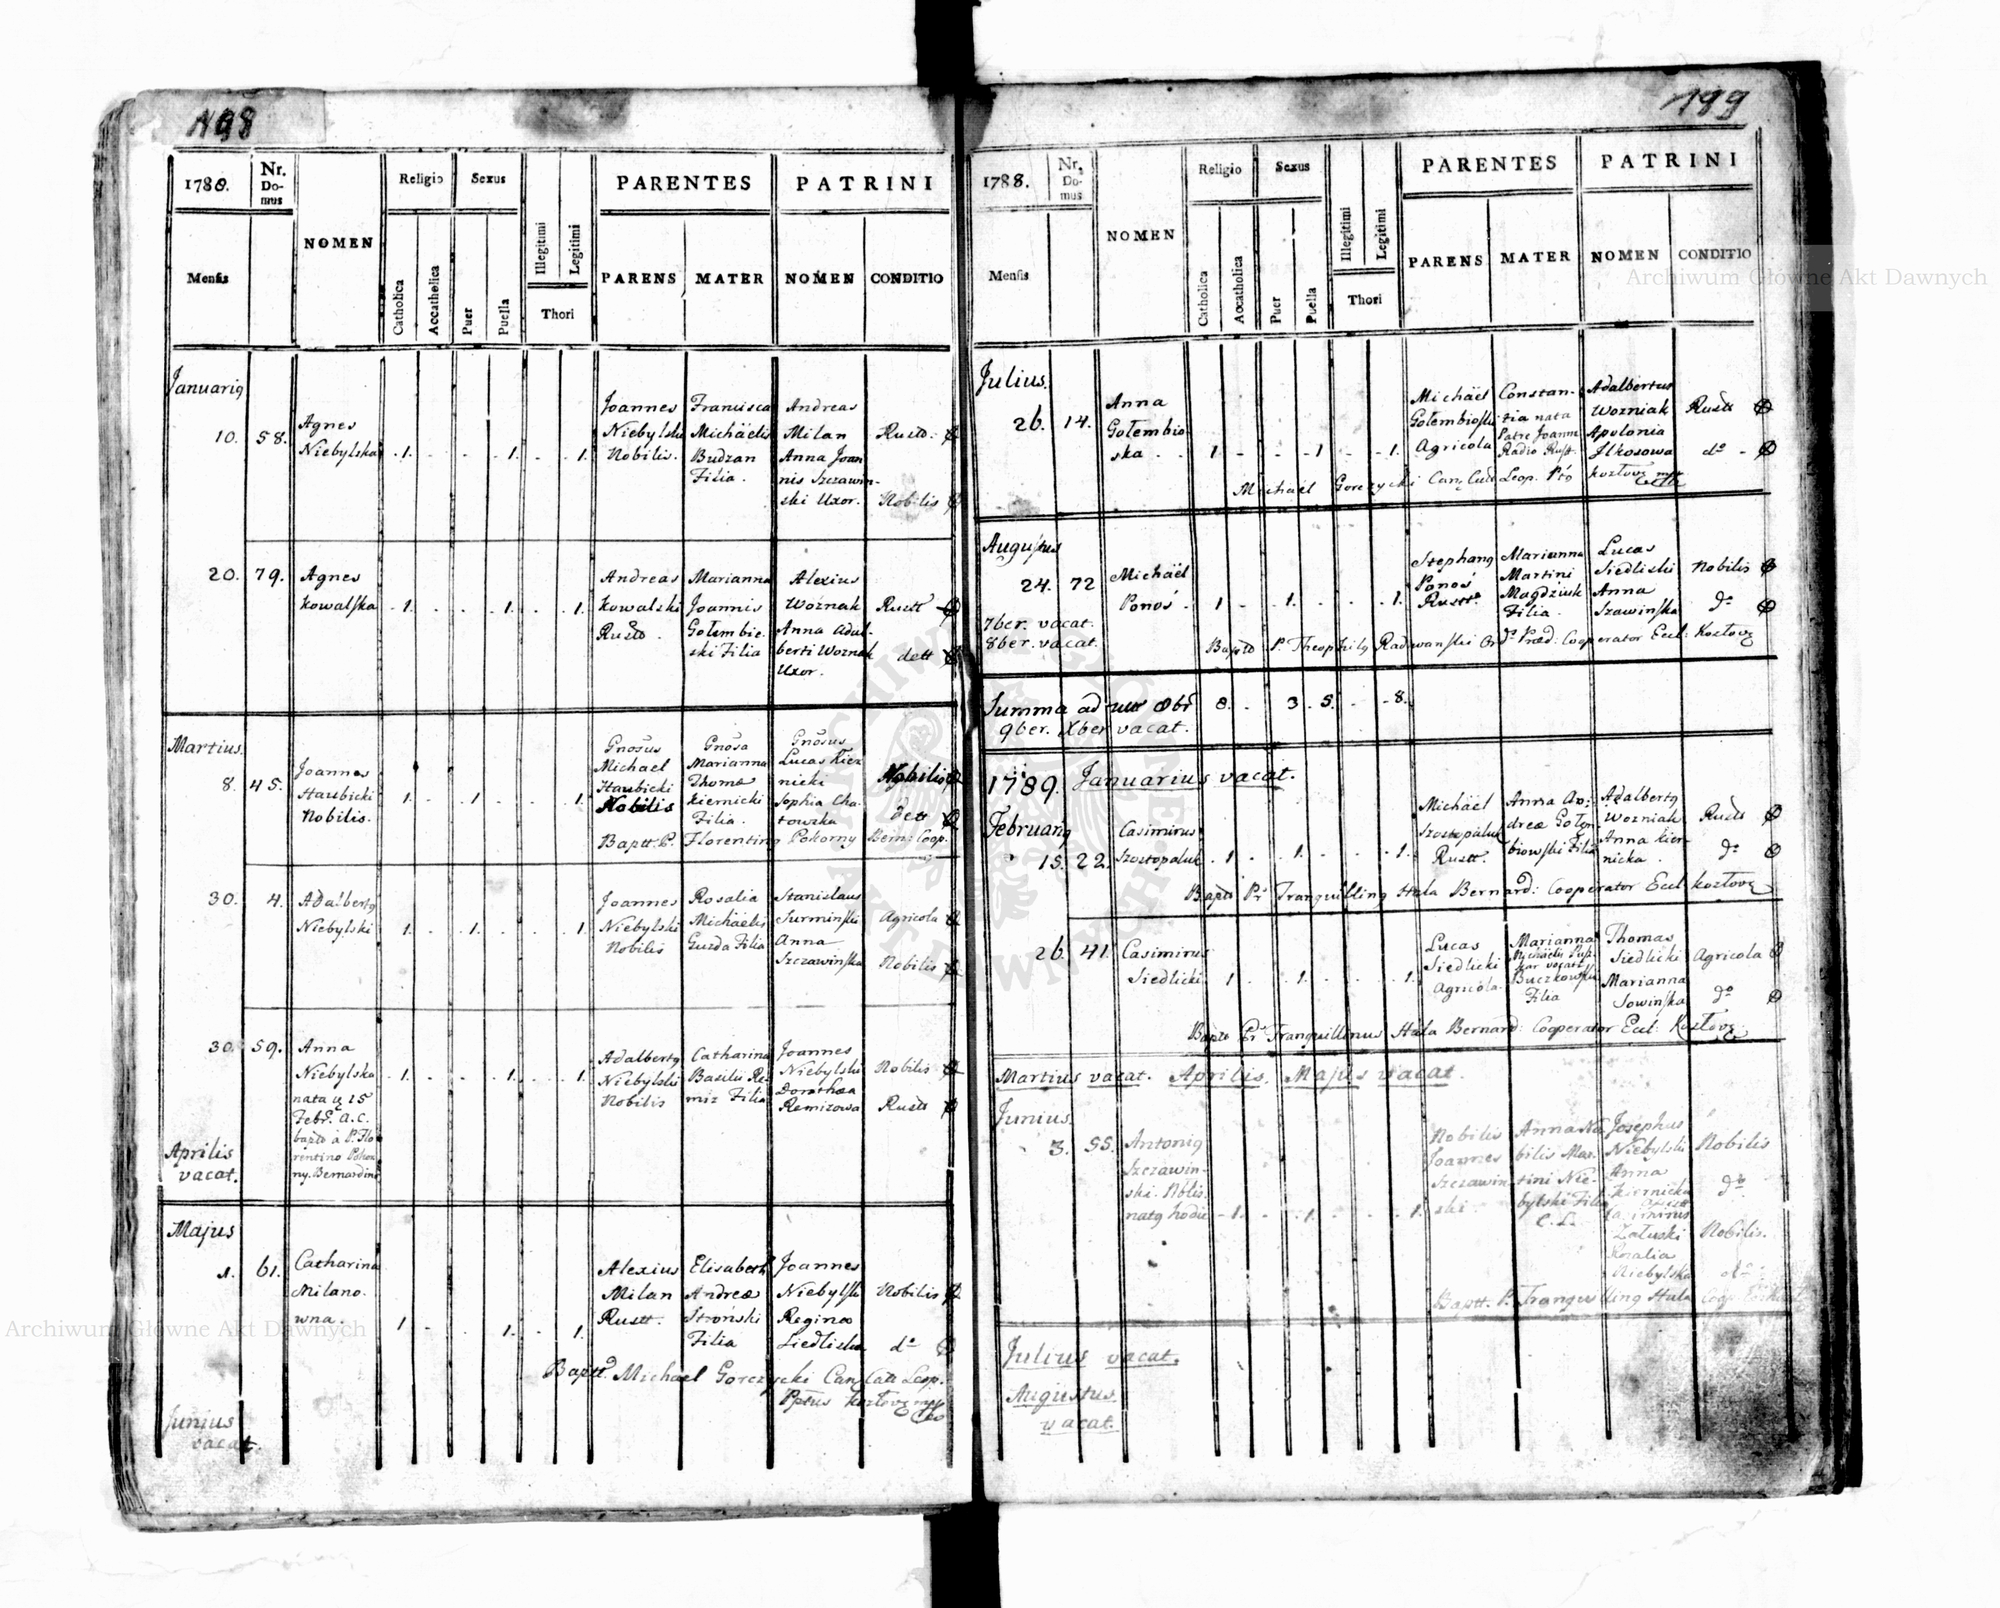 198
1788.
Nr. Domus
NOMEN
Religio
Sexus
PARENTES
PATRINI
Mensis
Catholica
Accatholica
Puer
Puella
Illegitimi
Legitimi
Thori
PARENS
MATER
NOMEN
CONDITIO
Januarig
10. 58. Agnes Niebylska .1. . . .1. . .1.
Joannes Niebylski Nobilis.
Francisca Michäelis Budzan Filia.
Andreas Milan
Anna Joannis Szczawinski Uxor.
Nobilis
20. 79. Agnes Kowalska .1. . . .1. . .1.
Andreas Kowalski
Marianna Joannis Gołembieski Filia
Alexius Woznak
Anna Adalberti Woznak Uxor.
Rustt
dett
Martius.
8. 45. Joannes Nobilis. 1. . .1. . . .1.
Michael Nobilis
Marianna Thomæ Kiernicki Filia.
Lucas Kiernicki
Sophia
Nobilis
dett
Baptt. P. Florenting Pokorny Bern: Coop.
30. 4. Adalbertg Niebylski 1. . .1. . . .1.
Joannes Niebylski Nobilis
Rosalia Michäelis Guzda Filia
Stanislaus Surminski
Anna Szczawinska
Agricola
Nobilis
30. 59. Anna Niebylska
nata 15
Febr. a. C.
bapto à P. Florentino Pokorny. Bernardino
.1. . . .1. . .1.
Adalbertg Niebylski Nobilis
Catharina Basilii Remiz Filia
Joannes Niebylski
Dorothea Remizowa
Nobilis
Rustt
Aprilis
vacat.
Majus
1. 61. Catharina Milanowna. 1. . . .1. . .1.
Alexius Milan Rustt.
Elisabeth Andreæ Stroński Filia
Joannes Niebylski
Regina Siedliska
Nobilis
do
Baptt. Michael Gorczycki Can. Leop.
Junius
vacat.
199
1788.
Nr. Domus
NOMEN
Religio
Sexus
PARENTES
PATRINI
Mensis
Catholica
Accatholica
Puer
Puella
Illegitimi
Legitimi
Thori
PARENS
MATER
NOMEN
CONDITIO
Julius.
26. 14. Anna Gołembioska 1. . . 1 . . 1.
Michäel Gołembioski Agricola
Constantia nata Patre Joanne
Adalbertus Wozniak
Apolonia
do
Michael Gorczycki Leop.
Augustus
24. 72 Michäel Ponoś. 1 . .1. . . .1.
Stephang Ponoś
Marianna Martini Magdziuk Filia.
Lucas Siedliski
Anna Szawinska
Nobilis
do
7ber. vacat.
8ber. vacat.
Bapto P. Theophilg Radwanski Ord. Præd: Cooperator Eccl:
Summa ad 8br 8. . 3 . 5. . . 8.
9ber. Xber vacat.
1789. Januarius vacat.
Februarig
15. 22. Casimirus Szostopaluk .1. . .1. . . .1.
Michäel Szostopaluk Rustt.
Anna Andreæ Gołembiowski Filia
Adalbertg Wozniak
Anna Kiernicka.
do
Bapto Pr Tranquilling Hala Bernard: Cooperator Eccl:
26. 41. Casimirus Siedlicki. 1 . .1. . . .1.
Lucas Siedlicki Agricola.
Marianna Michäelis Buczkowski Filia
Thomas Siedlicki
Marianna Sowinska
Agricola
do
Bapto Pr Tranquillinus Hala Bernard: Cooperator Eccl:
Martius vacat. Aprilis. Majus vacat.
Junius.
3. 55. Antonig Szczawinski. Nblis. natg hodie .1. . .1. . . .1.
Nobilis Joannes Szczawinski.
Anna Nobilis Martini Niebylski Filia
Josephus Niebylski
Anna Kiernicka
Casimirus Załuski
Rosalia Niebylska
Nobilis
do
Nobilis.
Baptt. P. Tranquilling Hala
Julius vacat.
Augustus
vacat.
Archiwum Główne Akt Dawnych
Archiwum Główne Akt Dawnych